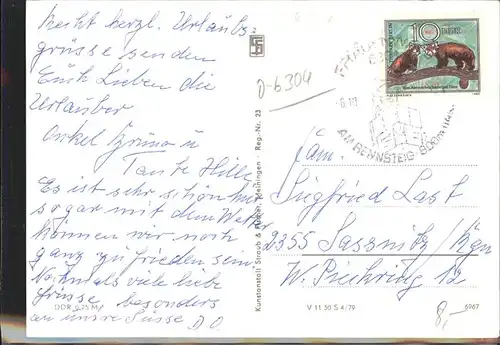 Recht herzl. Urlaubs-
grüsse senden
Euch Lieben die
Urlauber
Onkel Bruno u
Tante Hilde
Es ist sehr schön hier
sogar mit dem Wetter
können wir noch
ganz zufrieden sein
Nochmals viele liebe
Grüsse besonders
an unsre Süsse D.O
DDR 0,25 M
D-6304
Kunstanstalt Straub & Fischer, Meiningen · Reg.-Nr. 23
10
DDR
FRAUENWALD
AM RENNSTEIG 800m
Fam.
Siegfried Last
2355 Sassnitz/Rgn
W. Pieckring 12
V 11 50 S 4/79
6967
8,-